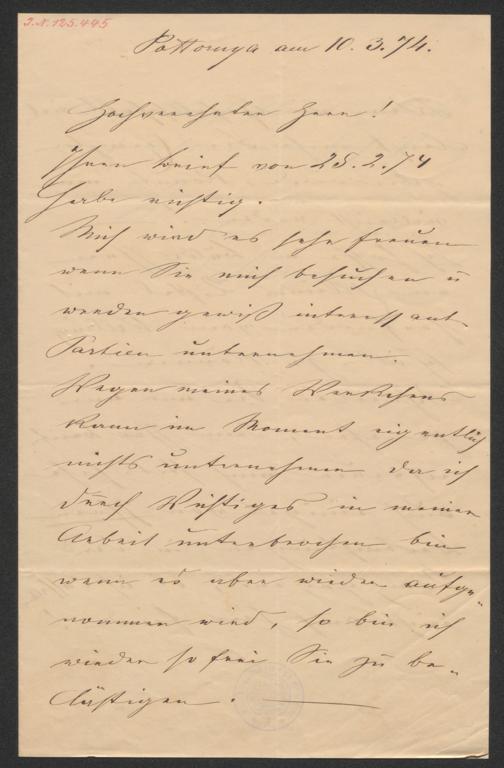 J.N. 125.445
Pottornya am 10.3.74.
Hochverehrter Herr!
Ihren Brief von 25.2.74
habe richtig.
Mich wird es sehr freuen
wenn Sie mich besuchen u
werden gewiß interessant.
Partien unternehmen.
Wegen meines
kann im Moment eigentlich
nichts unternehmen da ich
durch Wichtiges in meiner
Arbeit unterbrochen bin
wenn es aber wieder aufge„
nommen wird, so bin ich
wieder so frei Sie zu be„
lästigen.